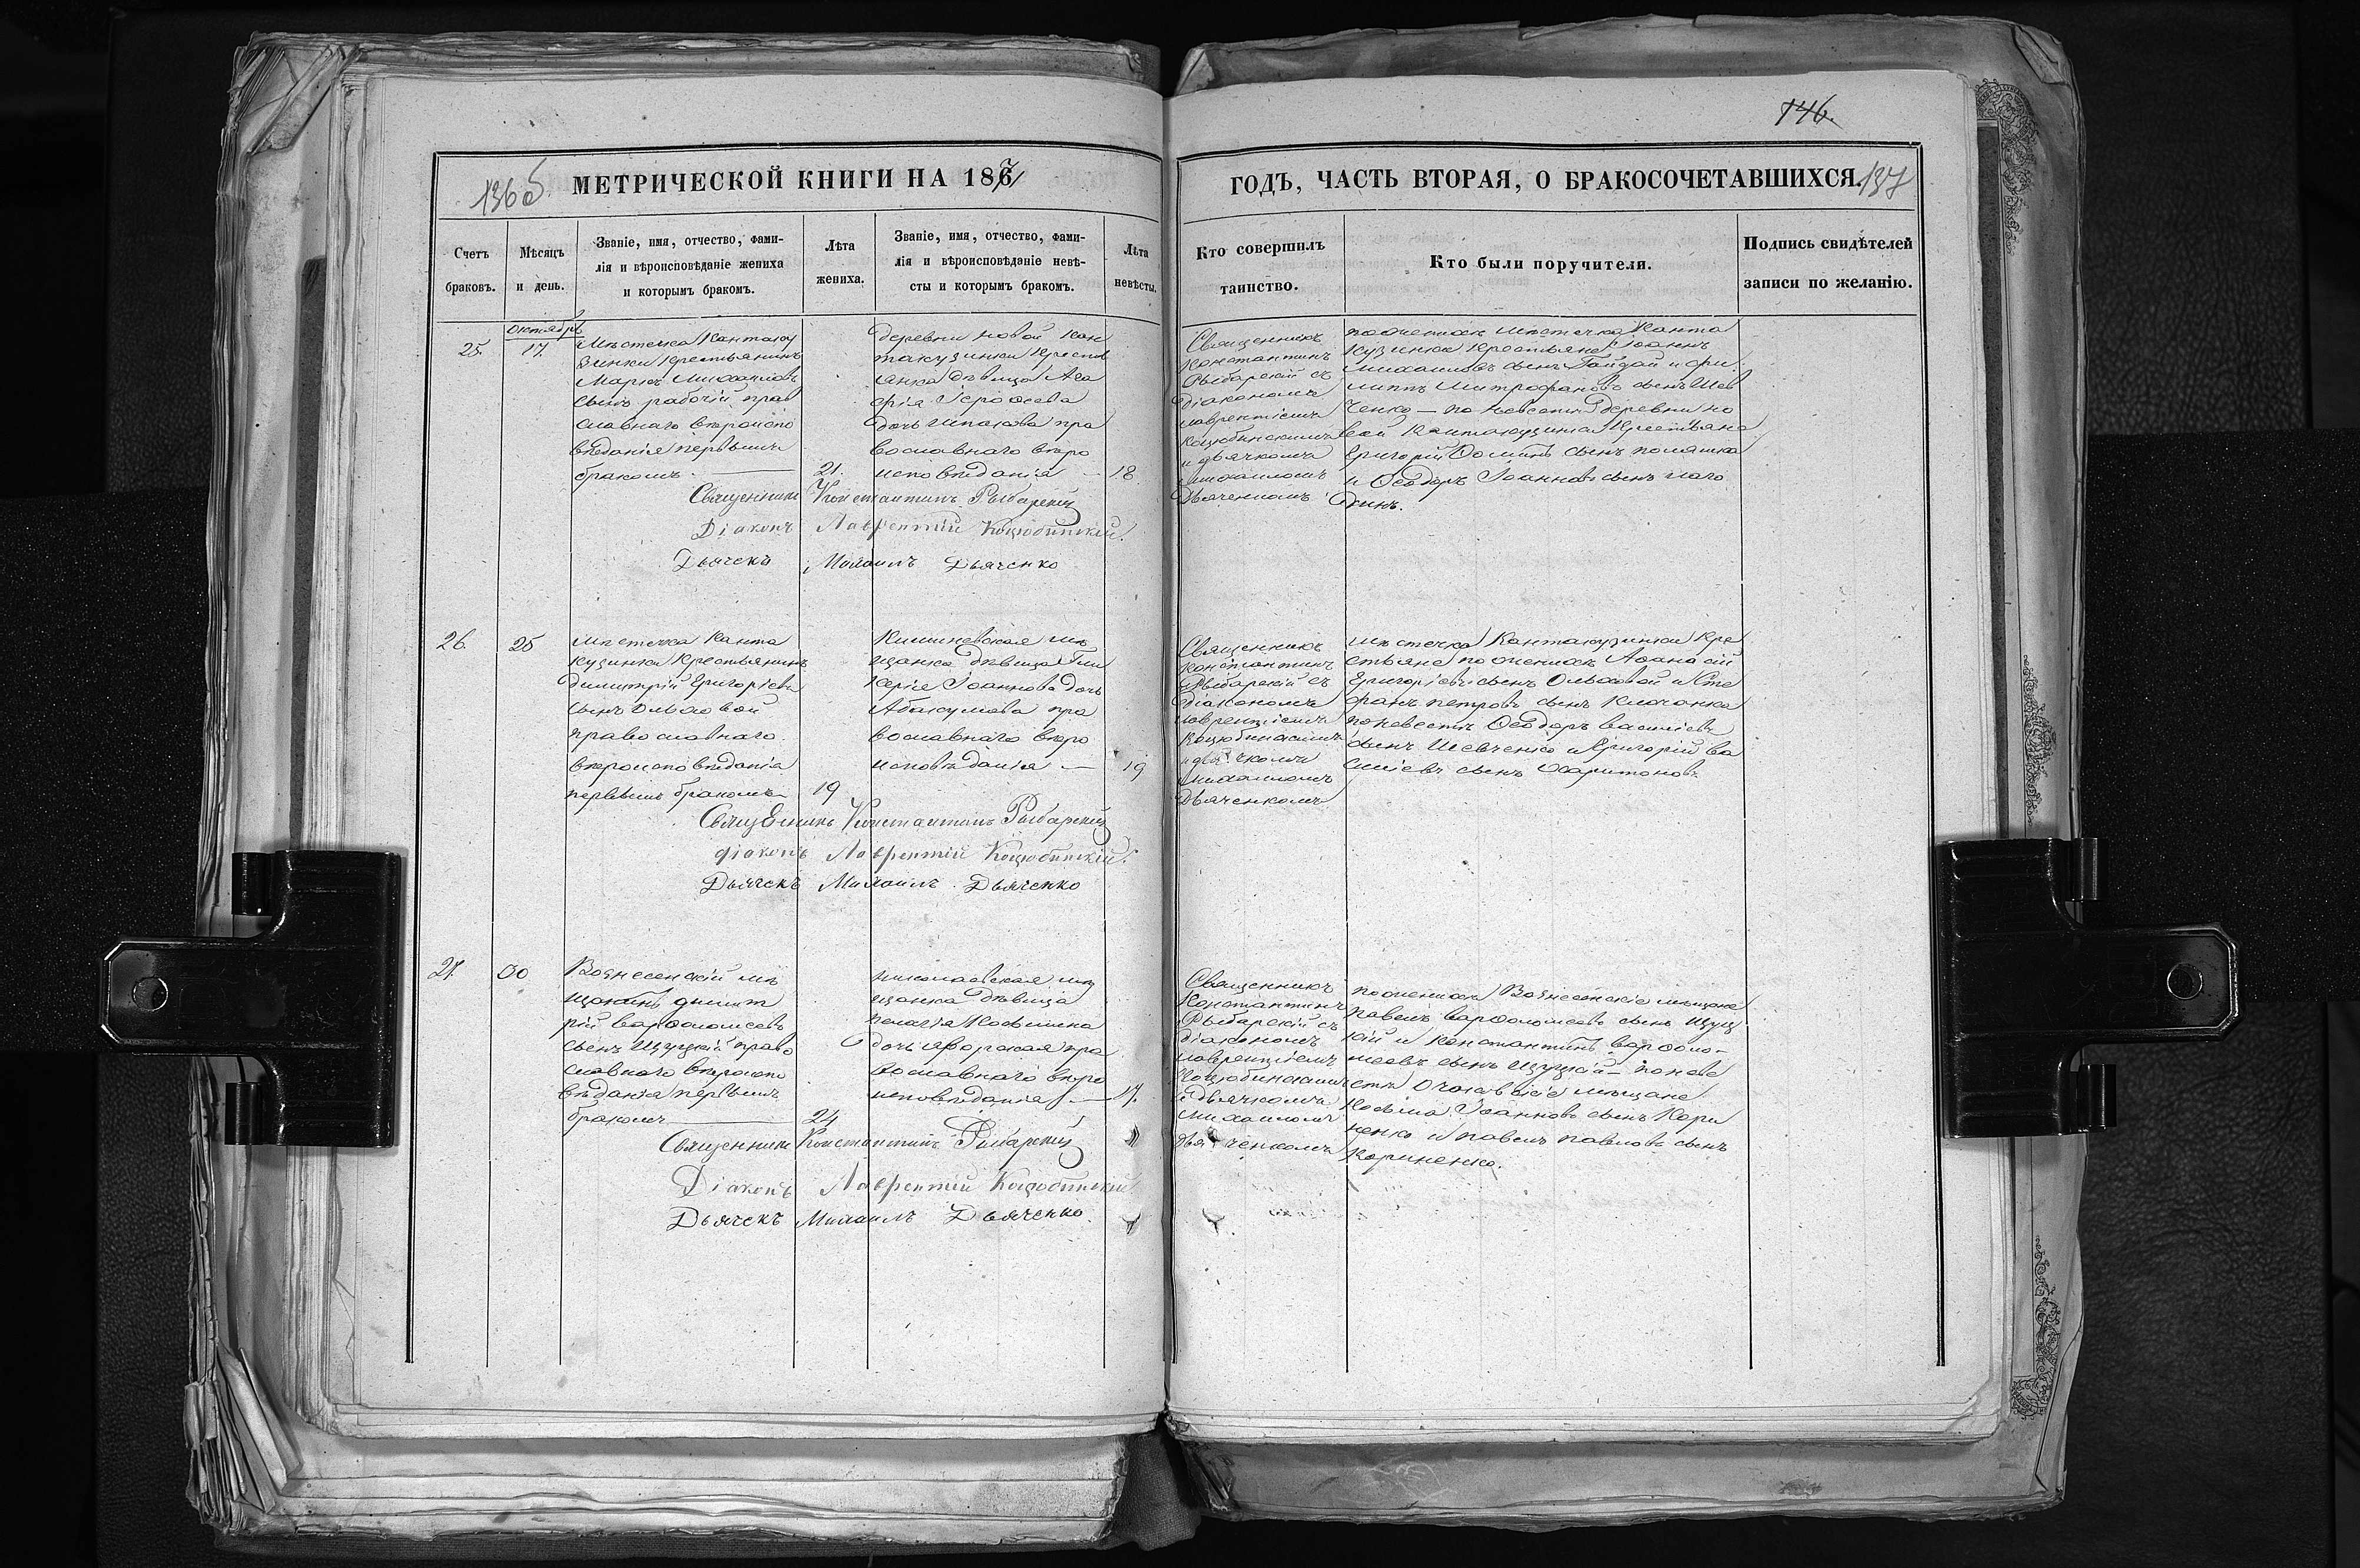 146.
136 об. МЕТРИЧЕСКОЙ КНИГИ НА 1871
ГОДЪ, ЧАСТЬ ВТОРАЯ, О БРАКОСОЧЕТАВШИХСЯ. 137
Счетъ браковъ.
Мѣсяцъ и день.
Званіе, имя, отчество, фами-
лія и вѣроисповѣданіе жениха
и которымъ бракомъ.
Лѣта
жениха.
Званіе, имя, отчество, фами-
лія и вѣроисповѣданіе невѣ-
сты и которымъ бракомъ.
Лѣта
невѣсты.
Кто совершилъ
таинство.
Кто были поручители.
Подпись свидѣтелей
записи по желанію.
Октябрь
25. 17.
Мѣстечка Кантаку
зинки крестьянинъ
Маркъ Михаиловъ
сынъ рабочій прав
славнаго вѣроиспо
вѣданія первымъ
бракомъ. 21.
деревни новой Кан
такузинки крестья
янка дѣвица Ага
фія
дочь православнаго вѣро
исповѣданія — 18
Священникъ
Константинъ
Рыбарскій съ
діакономъ
лаврентіемъ
Коцюбинскимъ
и дьячкомъ
михаиломъ
Дьяченкомъ
по женихѣ мѣстечка Канта
кузинки крестьяне Іоаннъ
михаиловъ сынъ Гайдай и фи
липпъ митрофановъ сынъ Шев
ченко — по невестѣ деревни но
вой кантакузинки крестьяне
Григорій Фоминъ сынъ
и Ѳеодоръ Іоанновъ сынъ
Священникъ Константинъ Рыбарскій
Діаконъ Лаврентій Коцюбинскій.
Дьячекъ Михаилъ Дьяченко
26. 25
мѣстечка Канта
кузинки крестьянинъ
димитрій Григоріевъ
сынъ Ольховой
православнаго
вѣроисповѣданія
первымъ бракомъ 19
Кишиневская мѣ
щанка дѣвица Гли
керія Іоаннова дочь
Абакумова пра
вославнаго вѣро
исповѣданія — 19
Священникъ
константинъ
Рыбарскій съ
діакономъ
лаврентіемъ
Коцюбинскимъ
и дьячкомъ
михаиломъ
Дьяченкомъ
мѣстечка Кантакузинки кре
стьяне по женихѣ Афанасій
Григоріевъ сынъ Ольховой и Сте
фанъ петровъ сынъ
по невестѣ Ѳеодоръ василіевъ
сынъ Шевченко и Григорій ва
силіевъ сынъ Харитоновъ
Священникъ Константинъ Рыбарскій
діаконъ Лаврентій Коцюбинскій.
Дьячекъ Михаилъ Дьяченко
27. 30
Вознесенскій мѣ
щанинъ димит
рій варфоломеевъ
сынъ Щуцкій право
славнаго вѣроиспо
вѣданія первымъ
бракомъ 24
николаевская мѣ
щанка дѣвица
пелагія Косьмина
дочь пра
вославнаго вѣро
исповѣданія — 17.
Священникъ
Константинъ
Рыбарскій съ
діакономъ
лаврентіемъ
Коцюбинскимъ
и дьячкомъ
михаиломъ
Дьяченкомъ
по женихѣ Вознесенскіе мѣщане
павелъ варфоломеевъ сынъ Щуц
кій и константинъ варфоло-
меевъ сынъ Щуцкій — по неве
стѣ Очаковскіе мѣщане
Косьма Іоанновъ сынъ Кори
ненко и павелъ павловъ сынъ
Кориненко.
Священникъ Константинъ Рыбарскій
Діаконъ Лаврентій Коцюбинскій
Дьячекъ Михаилъ Дьяченко